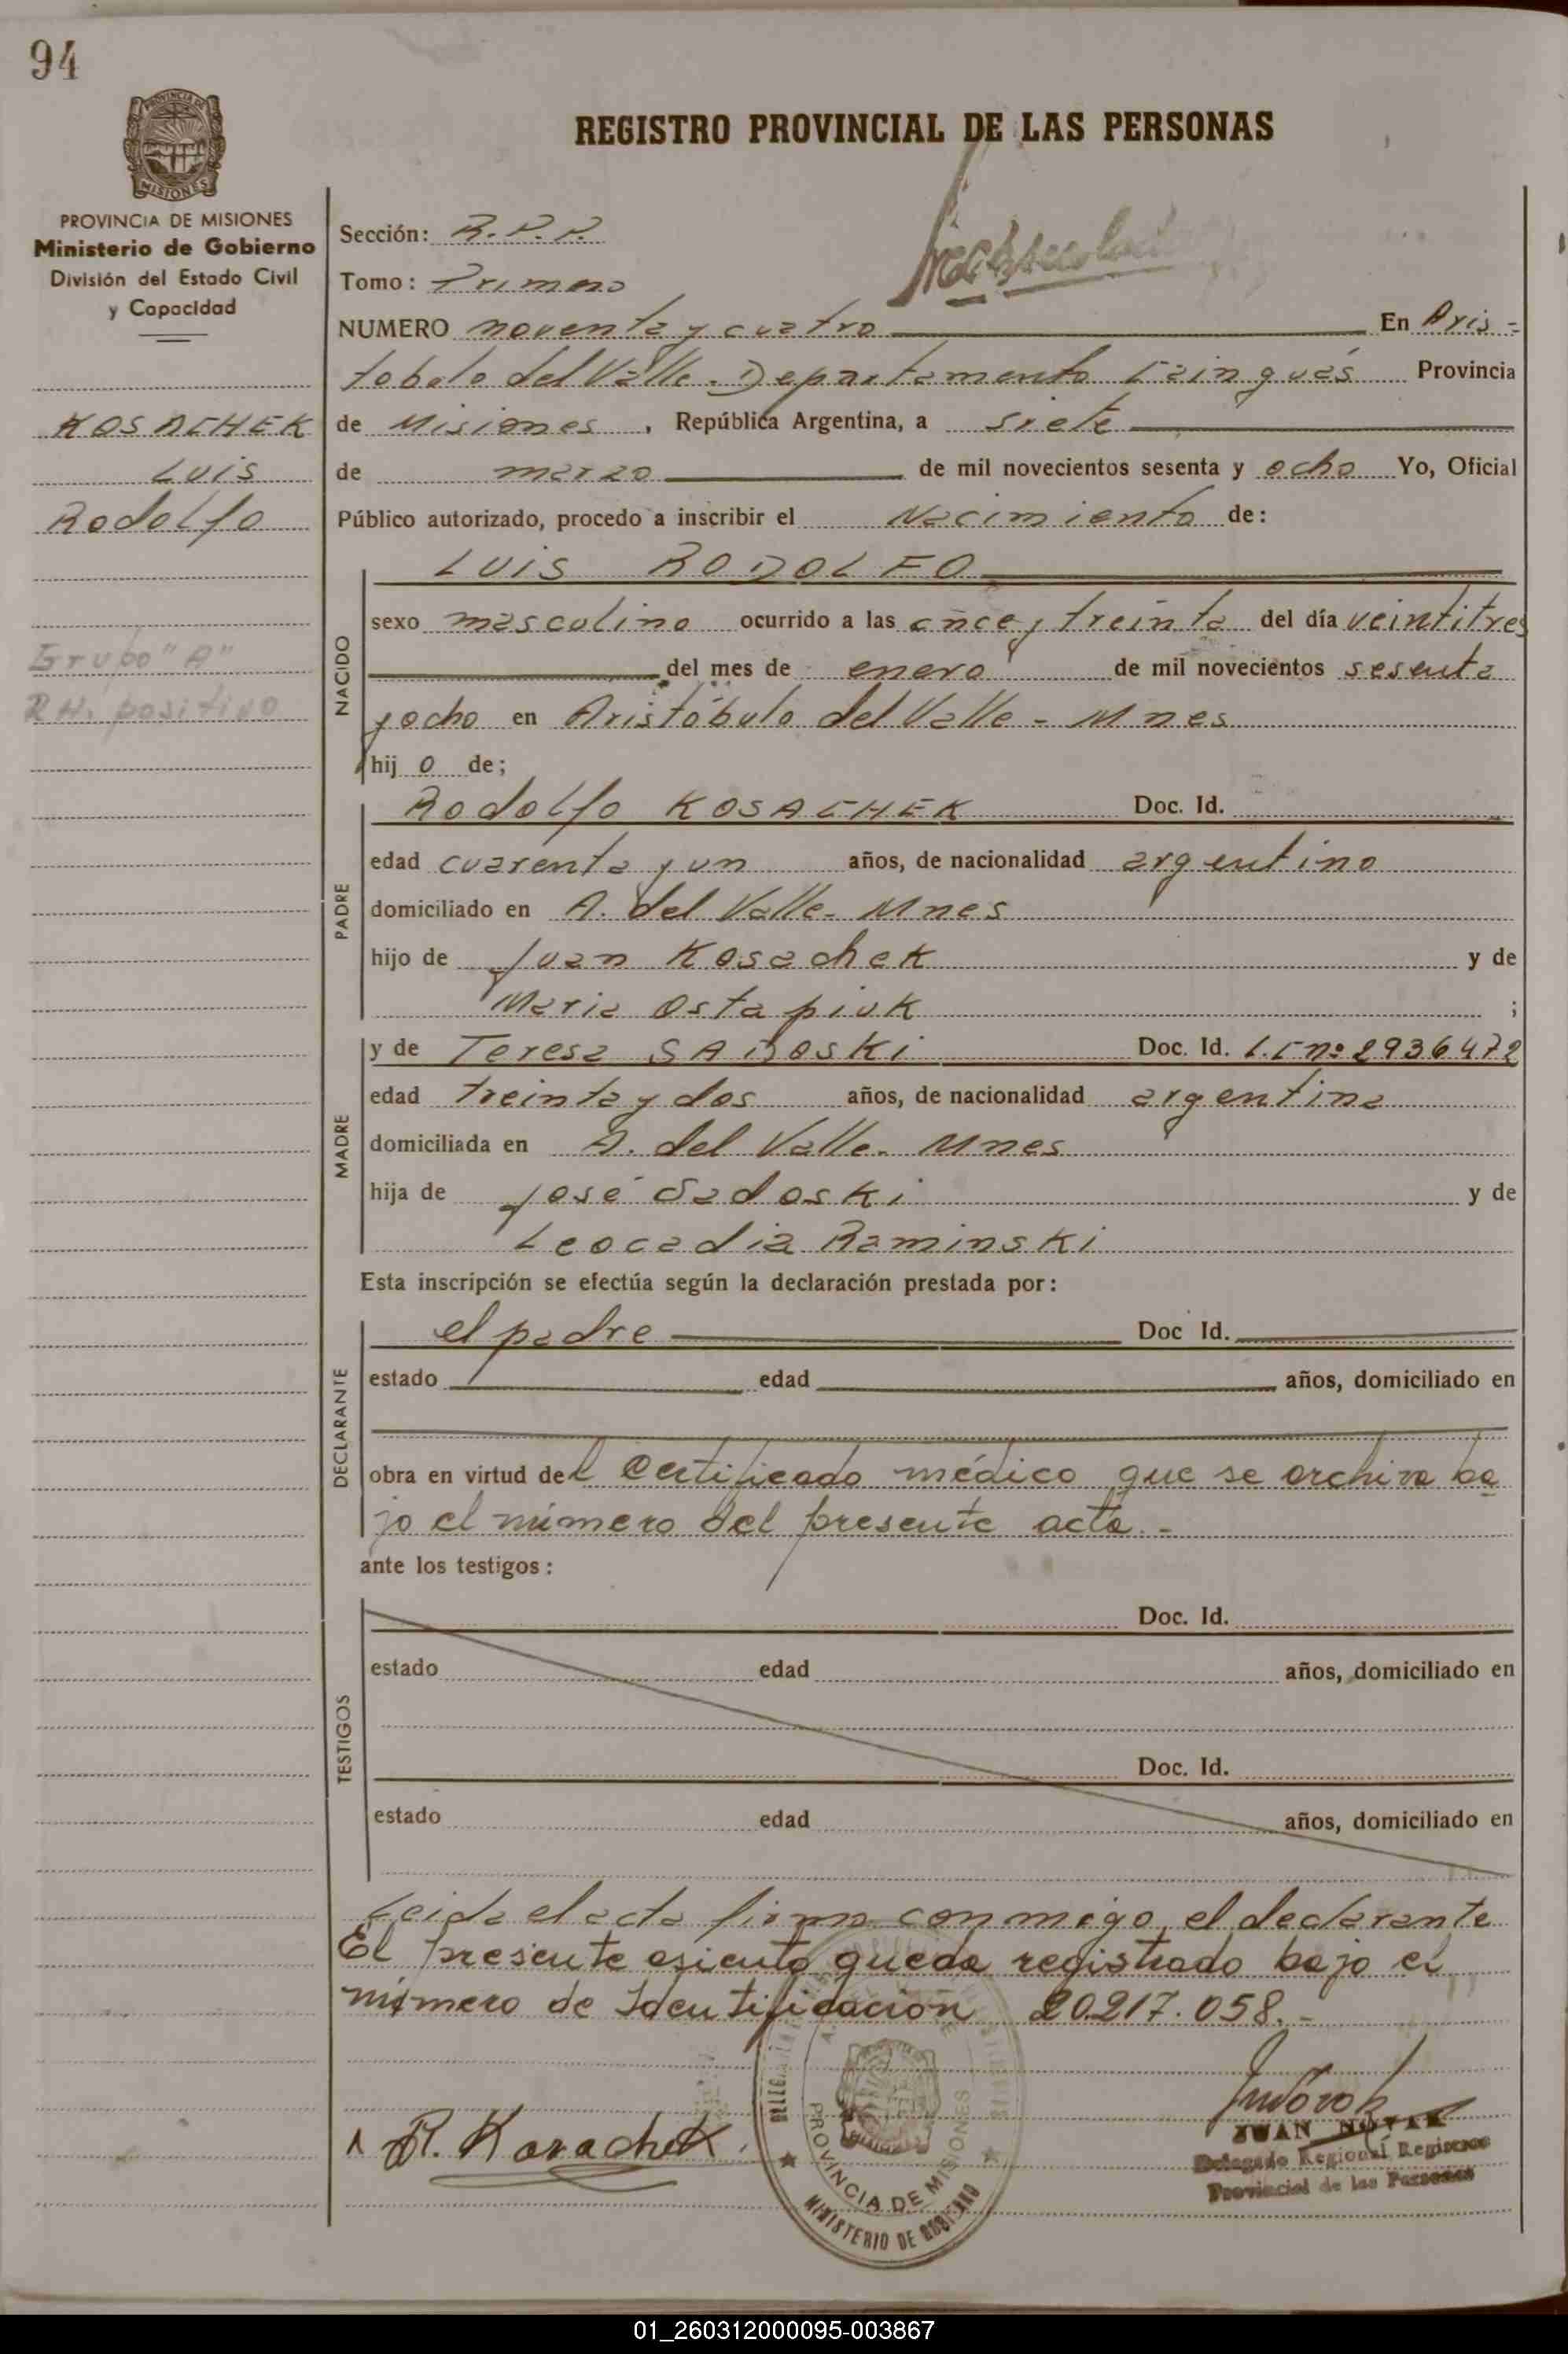 94
PROVINCIA DE MISIONES
PROVINCIA DE MISIONES
Ministerio de Gobierno
División del Estado Civil
y Capacidad
KOSACHEK
LUIS
Rodolfo
Grupo "A"
RH. positivo
REGISTRO PROVINCIAL DE LAS PERSONAS
Sección: R.P.P.
Tomo: Primero
NUMERO noventa y cuatro En Aris-
tobulo del Valle. Departamento Cainguás Provincia
de Misiones, República Argentina, a siete
de marzo de mil novecientos sesenta y ocho Yo, Oficial
Público autorizado, procedo a inscribir el Nacimiento de:
NACIDO
LUIS RODOLFO
sexo masculino ocurrido a las once y treinta del día veintitres
del mes de enero de mil novecientos sesenta
y ocho en Aristóbulo del Valle - Mnes
hij o de;
PADRE
Rodolfo KOSACHEK Doc. Id.
edad cuarenta y un años, de nacionalidad argentino
domiciliado en A. del Valle- Mnes
hijo de Juan Kosachek y de
Maria Ostapiuk ;
MADRE
y de Teresa SADOSKI Doc. Id. L.C nº 2936472
edad treinta y dos años, de nacionalidad argentina
domiciliada en A. del Valle- Mnes
hija de José Sadoski y de
Leocadia Raminski
Esta inscripción se efectúa según la declaración prestada por:
DECLARANTE
el padre Doc Id.
estado edad años, domiciliado en
obra en virtud del Certificado médico que se archiva ba
jo el número del presente acta.-
ante los testigos:
TESTIGOS
Doc. Id.
estado edad años, domiciliado en
Doc. Id.
estado edad años, domiciliado en
Leida el acta firma conmigo, el declarante
El presente asiento queda registrado bajo el
número de Identificación 20.217.058.-
R. Kosachek
PROVINCIA DE MISIONES
MINISTERIO DE GOBIERNO
JUAN NOVAK
Delegado Regional Registro
Provincial de las Personas
01_260312000095-003867